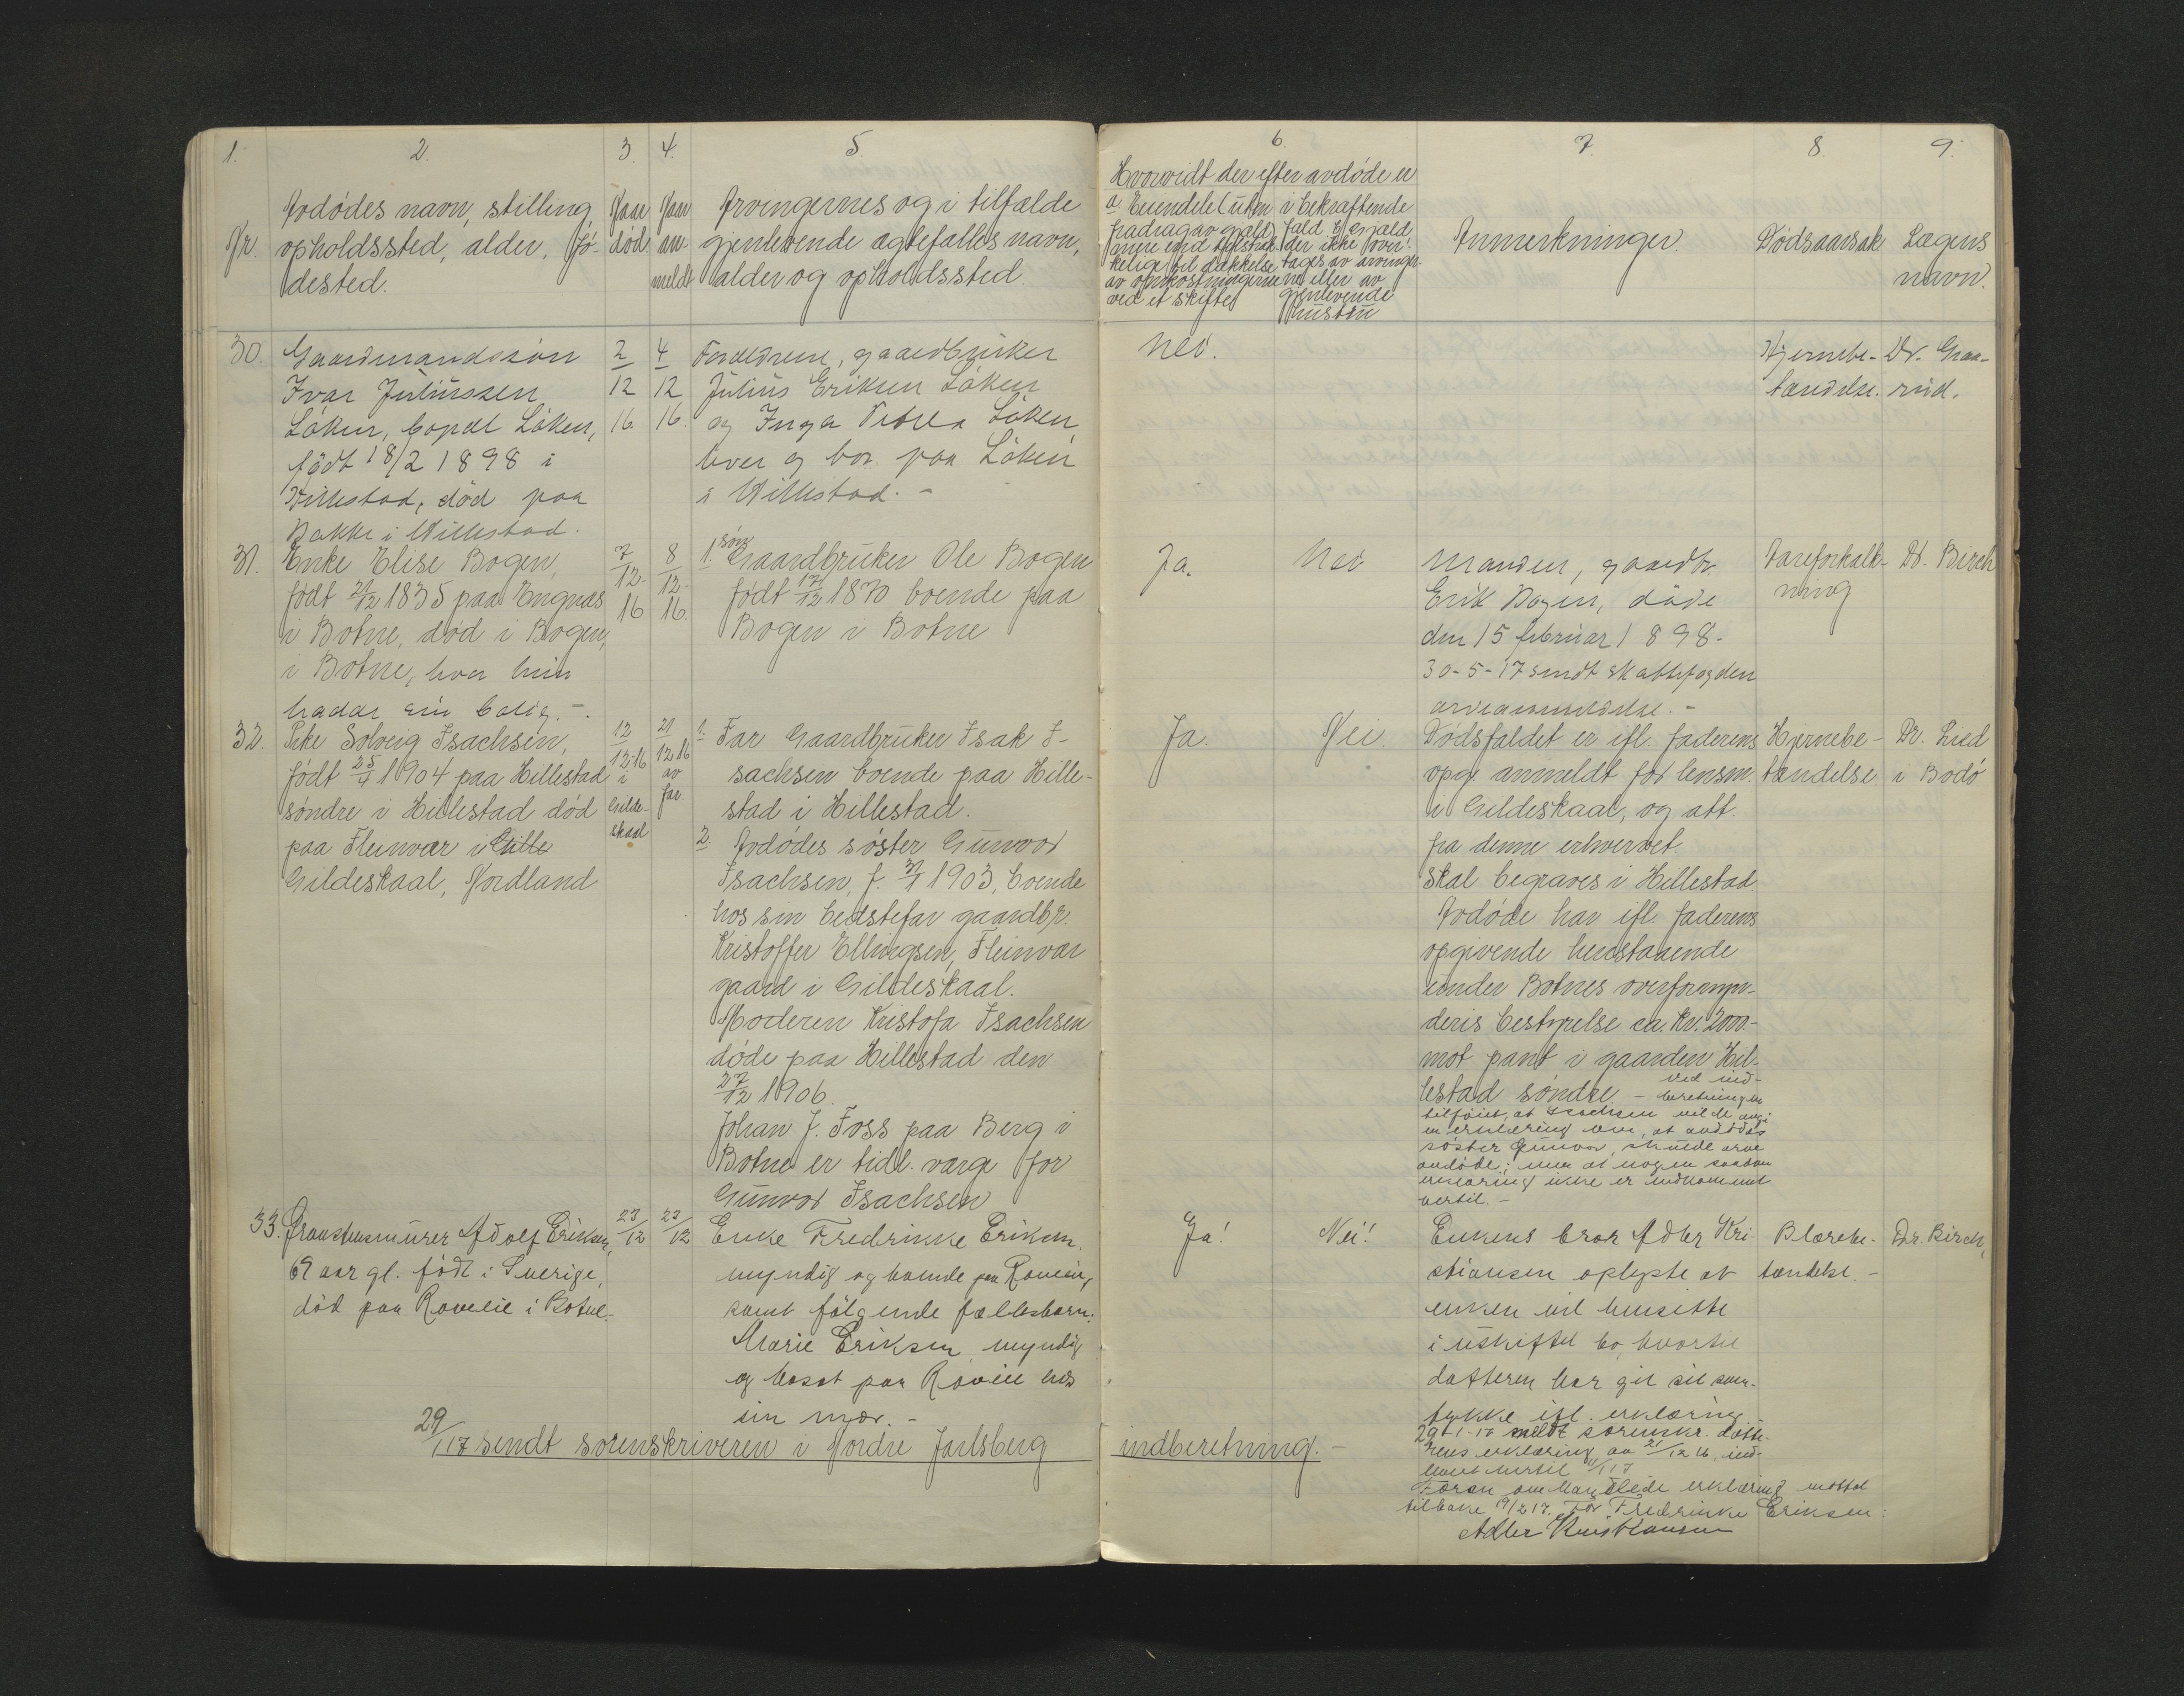 1. 2. 3. 4. 5. 6 7. 8. 9.
Nr.
Avdødes navn, stilling,
opholdssted, alder, fø-
dested.
Naar
død.
Naar
an-
meldt
Arvingernes og i tilfælde
gjenlevende ægtefælles navn,
alder og opholdssted.
Hvorvidt der efter avdøde er
a Eiendele (uten
fradrag av gjæld)
mere end tilstræk-
kelige til dækkelse
av omkostningerne
ved et skifte
i bekræftende
fald. b) Gjæld
der ikke over-
tages av arvinger
ne eller av
gjenlevende
hustru
Anmerkninger.
Dødsaarsak
Lægens
navn.
30.
Gaardmandssøn
Ivar Juliussen
Løken, bopæl Løken,
født 18/2 1898 i
Hillestad, død paa
Bakke i Hillestad.
2
12
16
4
12
16.
Forældrene, gaardbruker
Julius Eriksen Løken
og Inga Petrea Løken
lever og bor paa Løken
i Hillestad. -
Nei.
Hjernebe-
tændelse.
Dr. Graa-
rud.
31.
Enke Elise Bogen,
født 21/12 1835 paa Engnæs
i Botne, død i Bogen,
i Botne, hvor hun
hadde sin bolig. -.
7
12.
16
8
12.
16.
1. søn
Gaardbruker Ole Bogen
født 17/12 1870 boende paa
Bogen i Botne
Ja.
Nei
Manden, gaardbr.
Erik Bogen, døde
den 15 februar 1898.
30-5-17 sendt skattefogden
arveanmeldelse. -
Aareforkalk-
ning
Dr. Birch
32.
Pike Solveig Isachsen,
født 25/4 1904 paa Hillestad
søndre i Hillestad død
paa Fleinvær i Gille
Gildeskaal, Nordland
12
12-16
i
Gilde-
skaal
21
12 16
av
far.
1. Far Gaardbruker Isak I-
sachsen boende paa Hille-
stad i Hillestad.
2. Avdødes søster Gunvor
Isachsen, f. 31/1 1903, boende
hos sin bedstefar gaardbr.
Kristoffer Ellingsen, Fleinvær
gaard i Gildeskaal.
Moderen Kristofa Isachsen
døde paa Hillestad den
27/12 1906.
Johan J. Foss paa Berg i
Botne er tidl. verge for
Gunvor Isachsen
Ja.
Nei.
Dødsfaldet er ifl. faderens
opg. anmeldt for lensm.
i Gildeskaal, og att.
fra denne erhvervet.
Skal begraves i Hillestad.
Avdøde har ifl. faderens
opgivende henstaaende
under Botnes overformyn-
deris bestyrelse ca. kr. 2000-
mot pant i gaarden Hil-
lestad søndre. - ved ind-
beretningen
tilføiet, at Isachsen vilde avgi
en erklæring om, at avdødes
søster Gunvor, skulde arve
avdøde; men at nogen saadan
erklæring ikke er indkommet
hertil. -
Hjernebe-
tændelse
Dr. Lied
i Bodø
33.
Graastensmurer Adolf Eriksen,
69 aar gl. født i Sverige,
død paa Roveli i Botne.
23/12
23/12
Enke Fredrikke Eriksen,
myndig og boende paa Roveli,
samt følgende fællesbarn:
Marie Eriksen, myndig
og bosat paa Roveli hos
sin mor. -
Ja!
Nei!
Enkens bror Adler Kri-
stiansen oplyste at
enken vil hensitte
i uskiftet bo, hvortil
datteren har git sit sam-
tykke ifl. erklæring.
29-1-17 meldt sorenskr. datte-
rens erklæring av 21/12 16, ind-
kommet hertil 4/1 17
Foran omhandlede erklæring mottat
tilbake 19/2 17. For Fredrikke Eriksen:
Adler Kristiansen
Blærebe-
tændelse. -
Dr. Birch,
29/1 17 sendt sorenskriveren i Nordre Jarlsberg indberetning. -